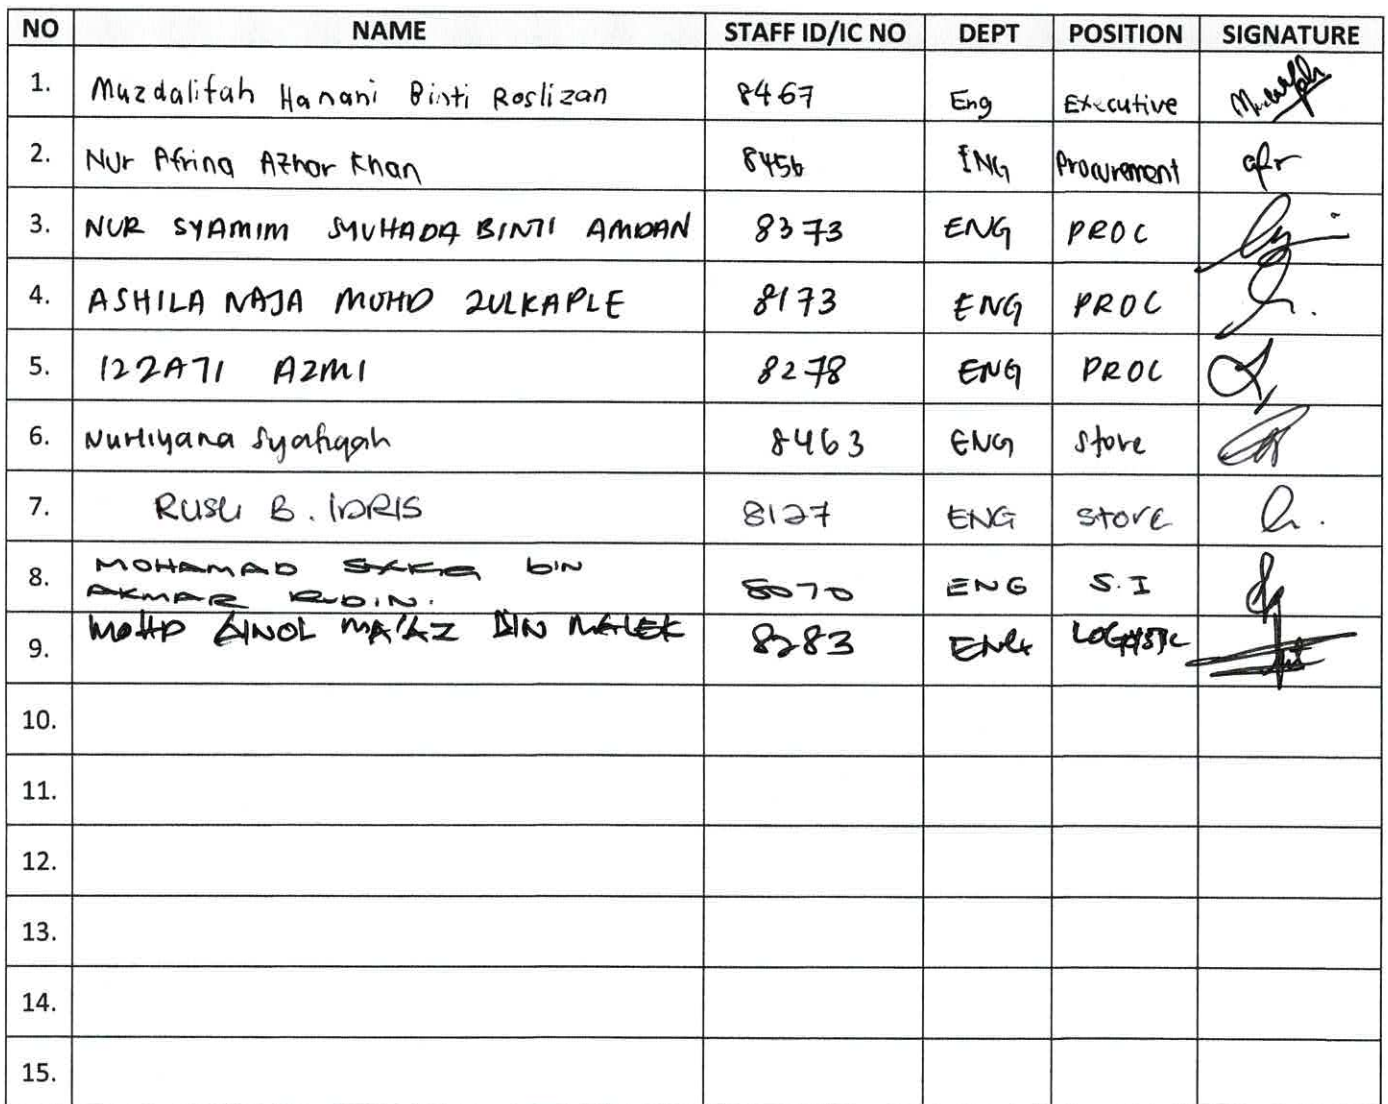 NO NAME STAFF ID/IC NO DEPT POSITION SIGNATURE
1. Muzdalifah Hanani Binti Roslizan 8467 Eng Executive
2. Nur Afrina Azhar Khan 8456 ENG Procurement afr
3. NUR SYAMIM SYUHADA BINTI AMDAN 8373 ENG PROC
4. ASHILA NAJA MOHD ZULKAPLE 8173 ENG PROC
5. IZZATI AZMI 8278 ENG PROC
6. Nurliyana Syafiqah 8463 ENG Store
7. RUSLI B. IDRIS 8127 ENG Store
8. MOHAMAD BIN
AKMAR 8070 ENG S.I
9. MOHD AINOL MA'AZ BIN MALEK 8283 ENG LOGISTIC
10.
11.
12.
13.
14.
15.